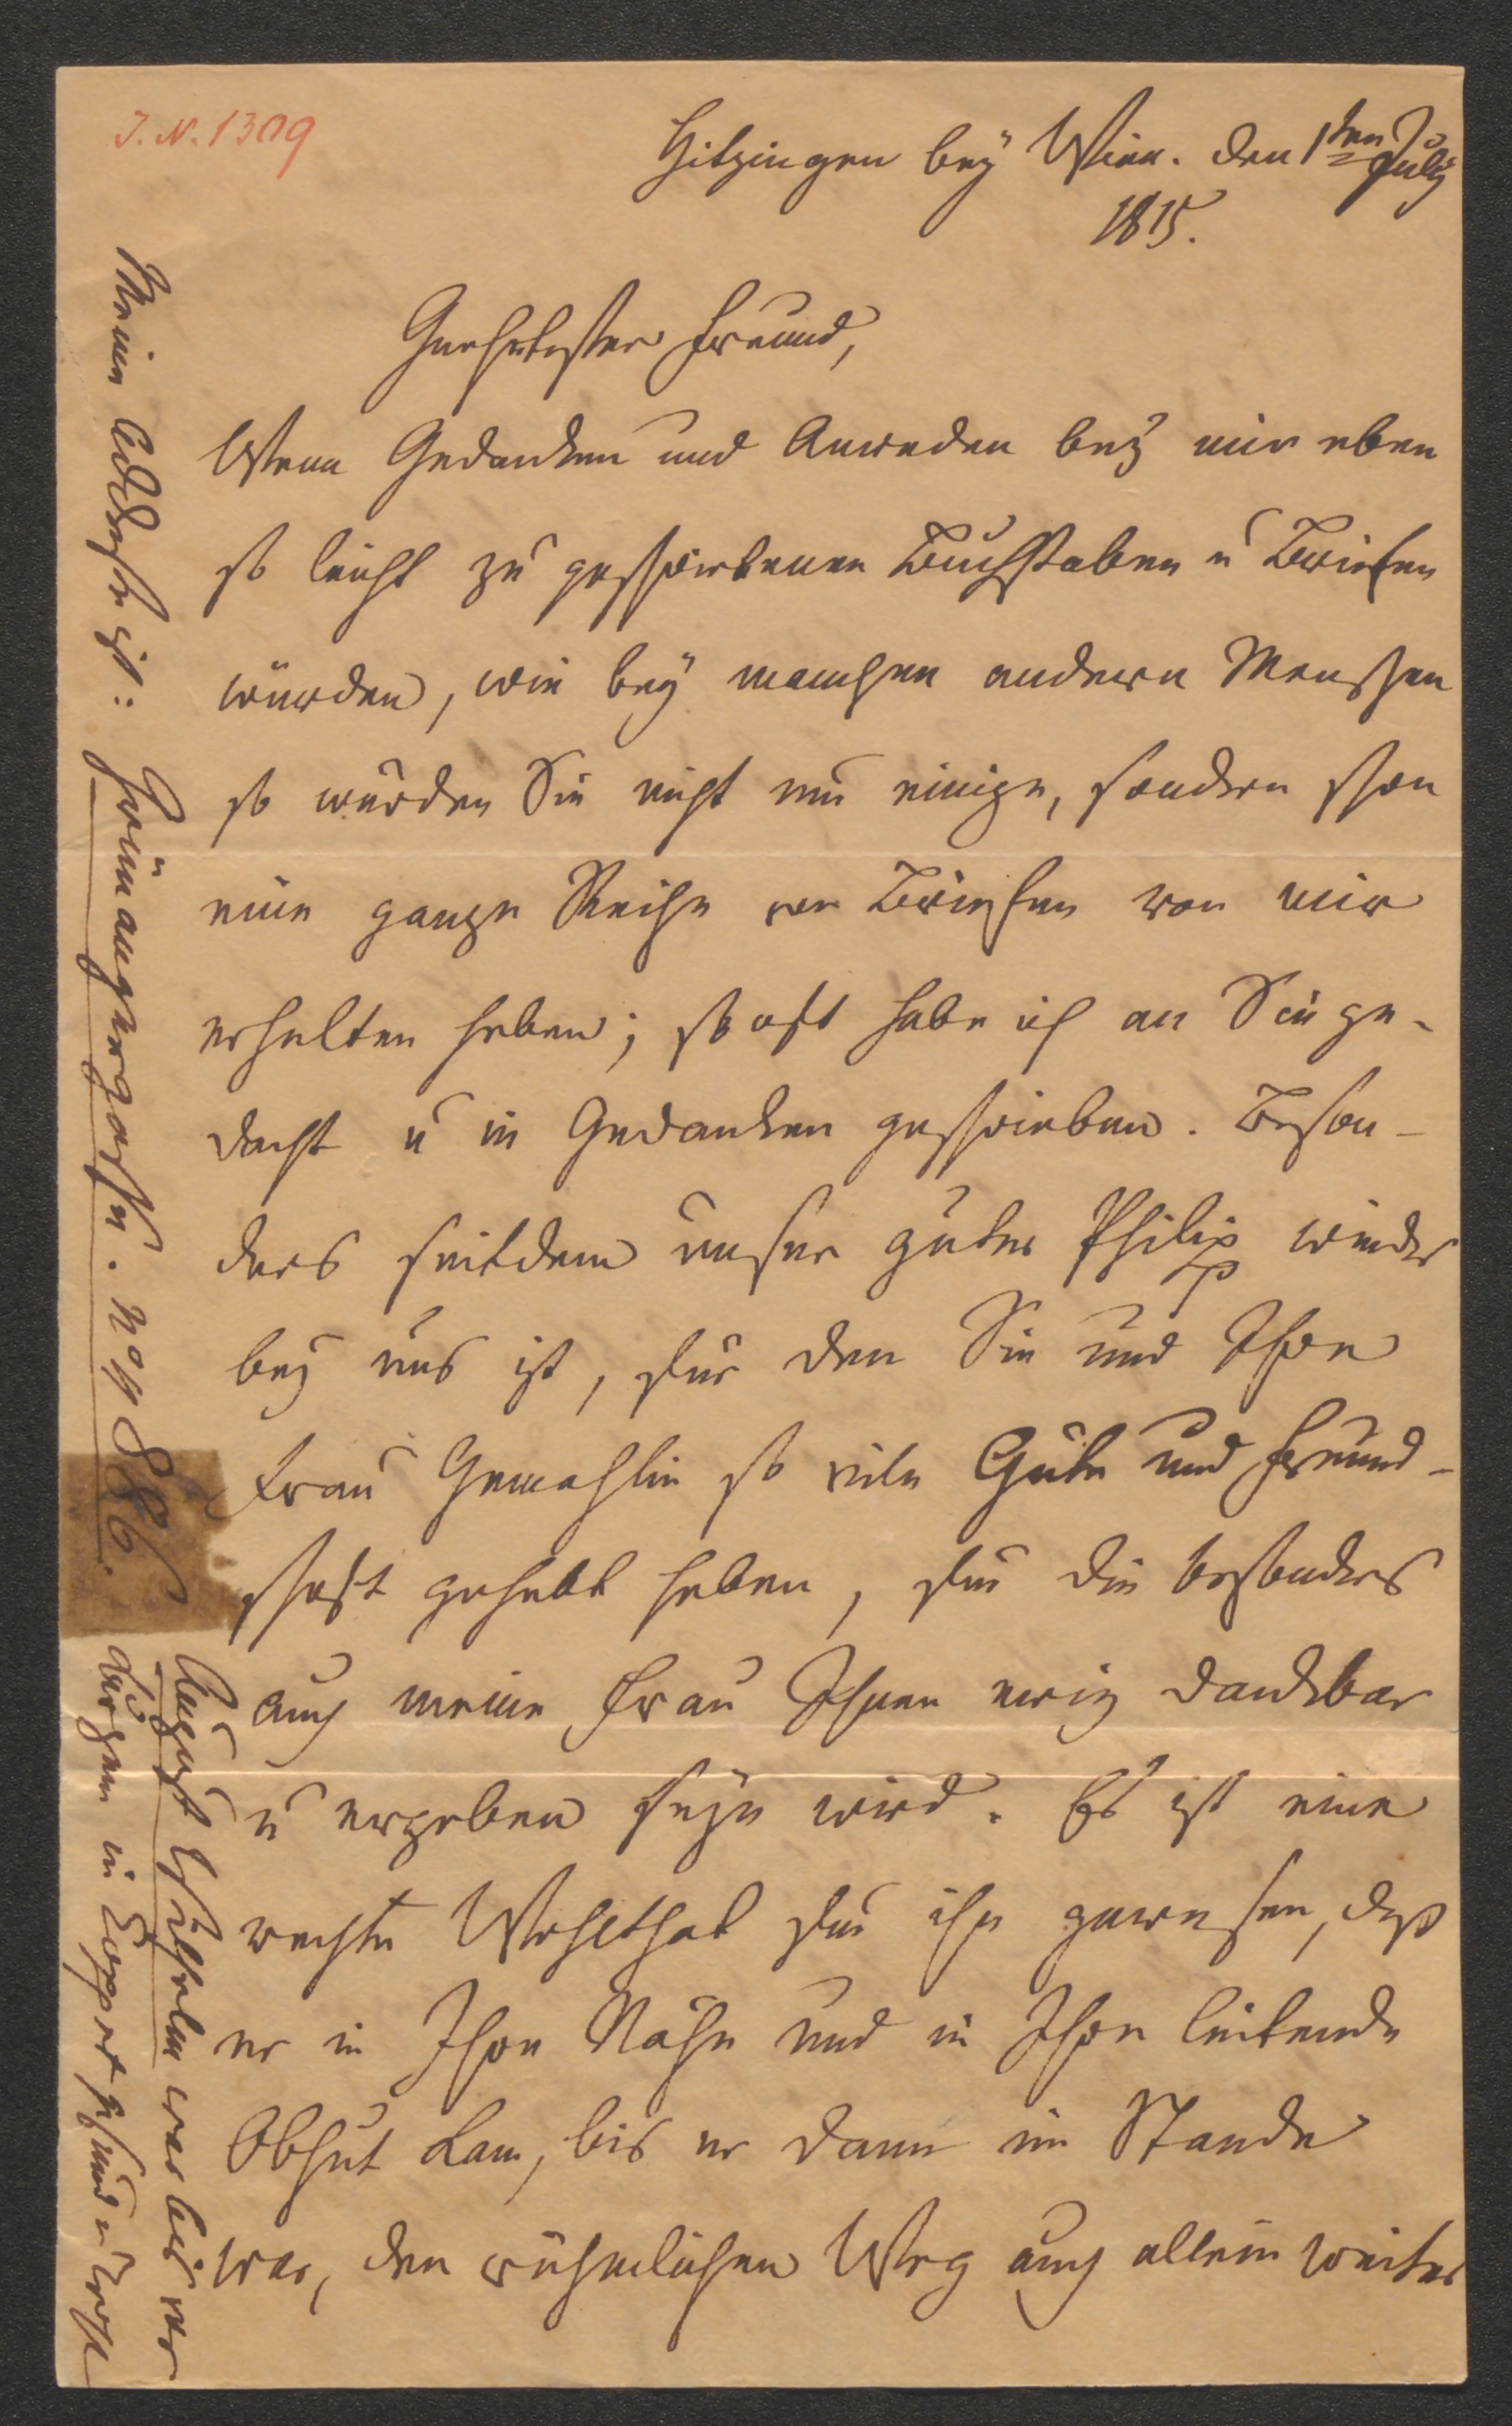 J. N. 1309
Hitzingen bey Wien. den 1ten July
1815.
Geehrtester Freund,
Wenn Gedanken und Anreden bey mir eben
so leicht zu geschriebenen Buchstaben u Briefen
würden, wie bey manchen andern Menschen
so würden Sie nicht nur einige, sondern schon
eine ganze Reihe von Briefen von mir
erhalten haben; so oft habe ich an Sie ge-
dacht u in Gedanken geschrieben. Beson-
ders seitdem unser guter Philipp wieder
bey uns ist, für den Sie und Ihre
Frau Gemahlin so viele Güte und Freund-
schaft gehabt haben, für die besonders
auch meine Frau Ihnen ewig dankbar
u ergeben seyn wird. Es ist eine
rechte Wohlthat für ihn gewesen, daß
er in Ihre Nähe und in Ihre leitende
Obhut kam, bis er dann im Stande
war, den rühmlichen Weg auch allein weiter
Meine Addresse ist: Grünangergasse. No 886.
August Wilhelm war bis vor
kurzem in Coppet gesund u wohl